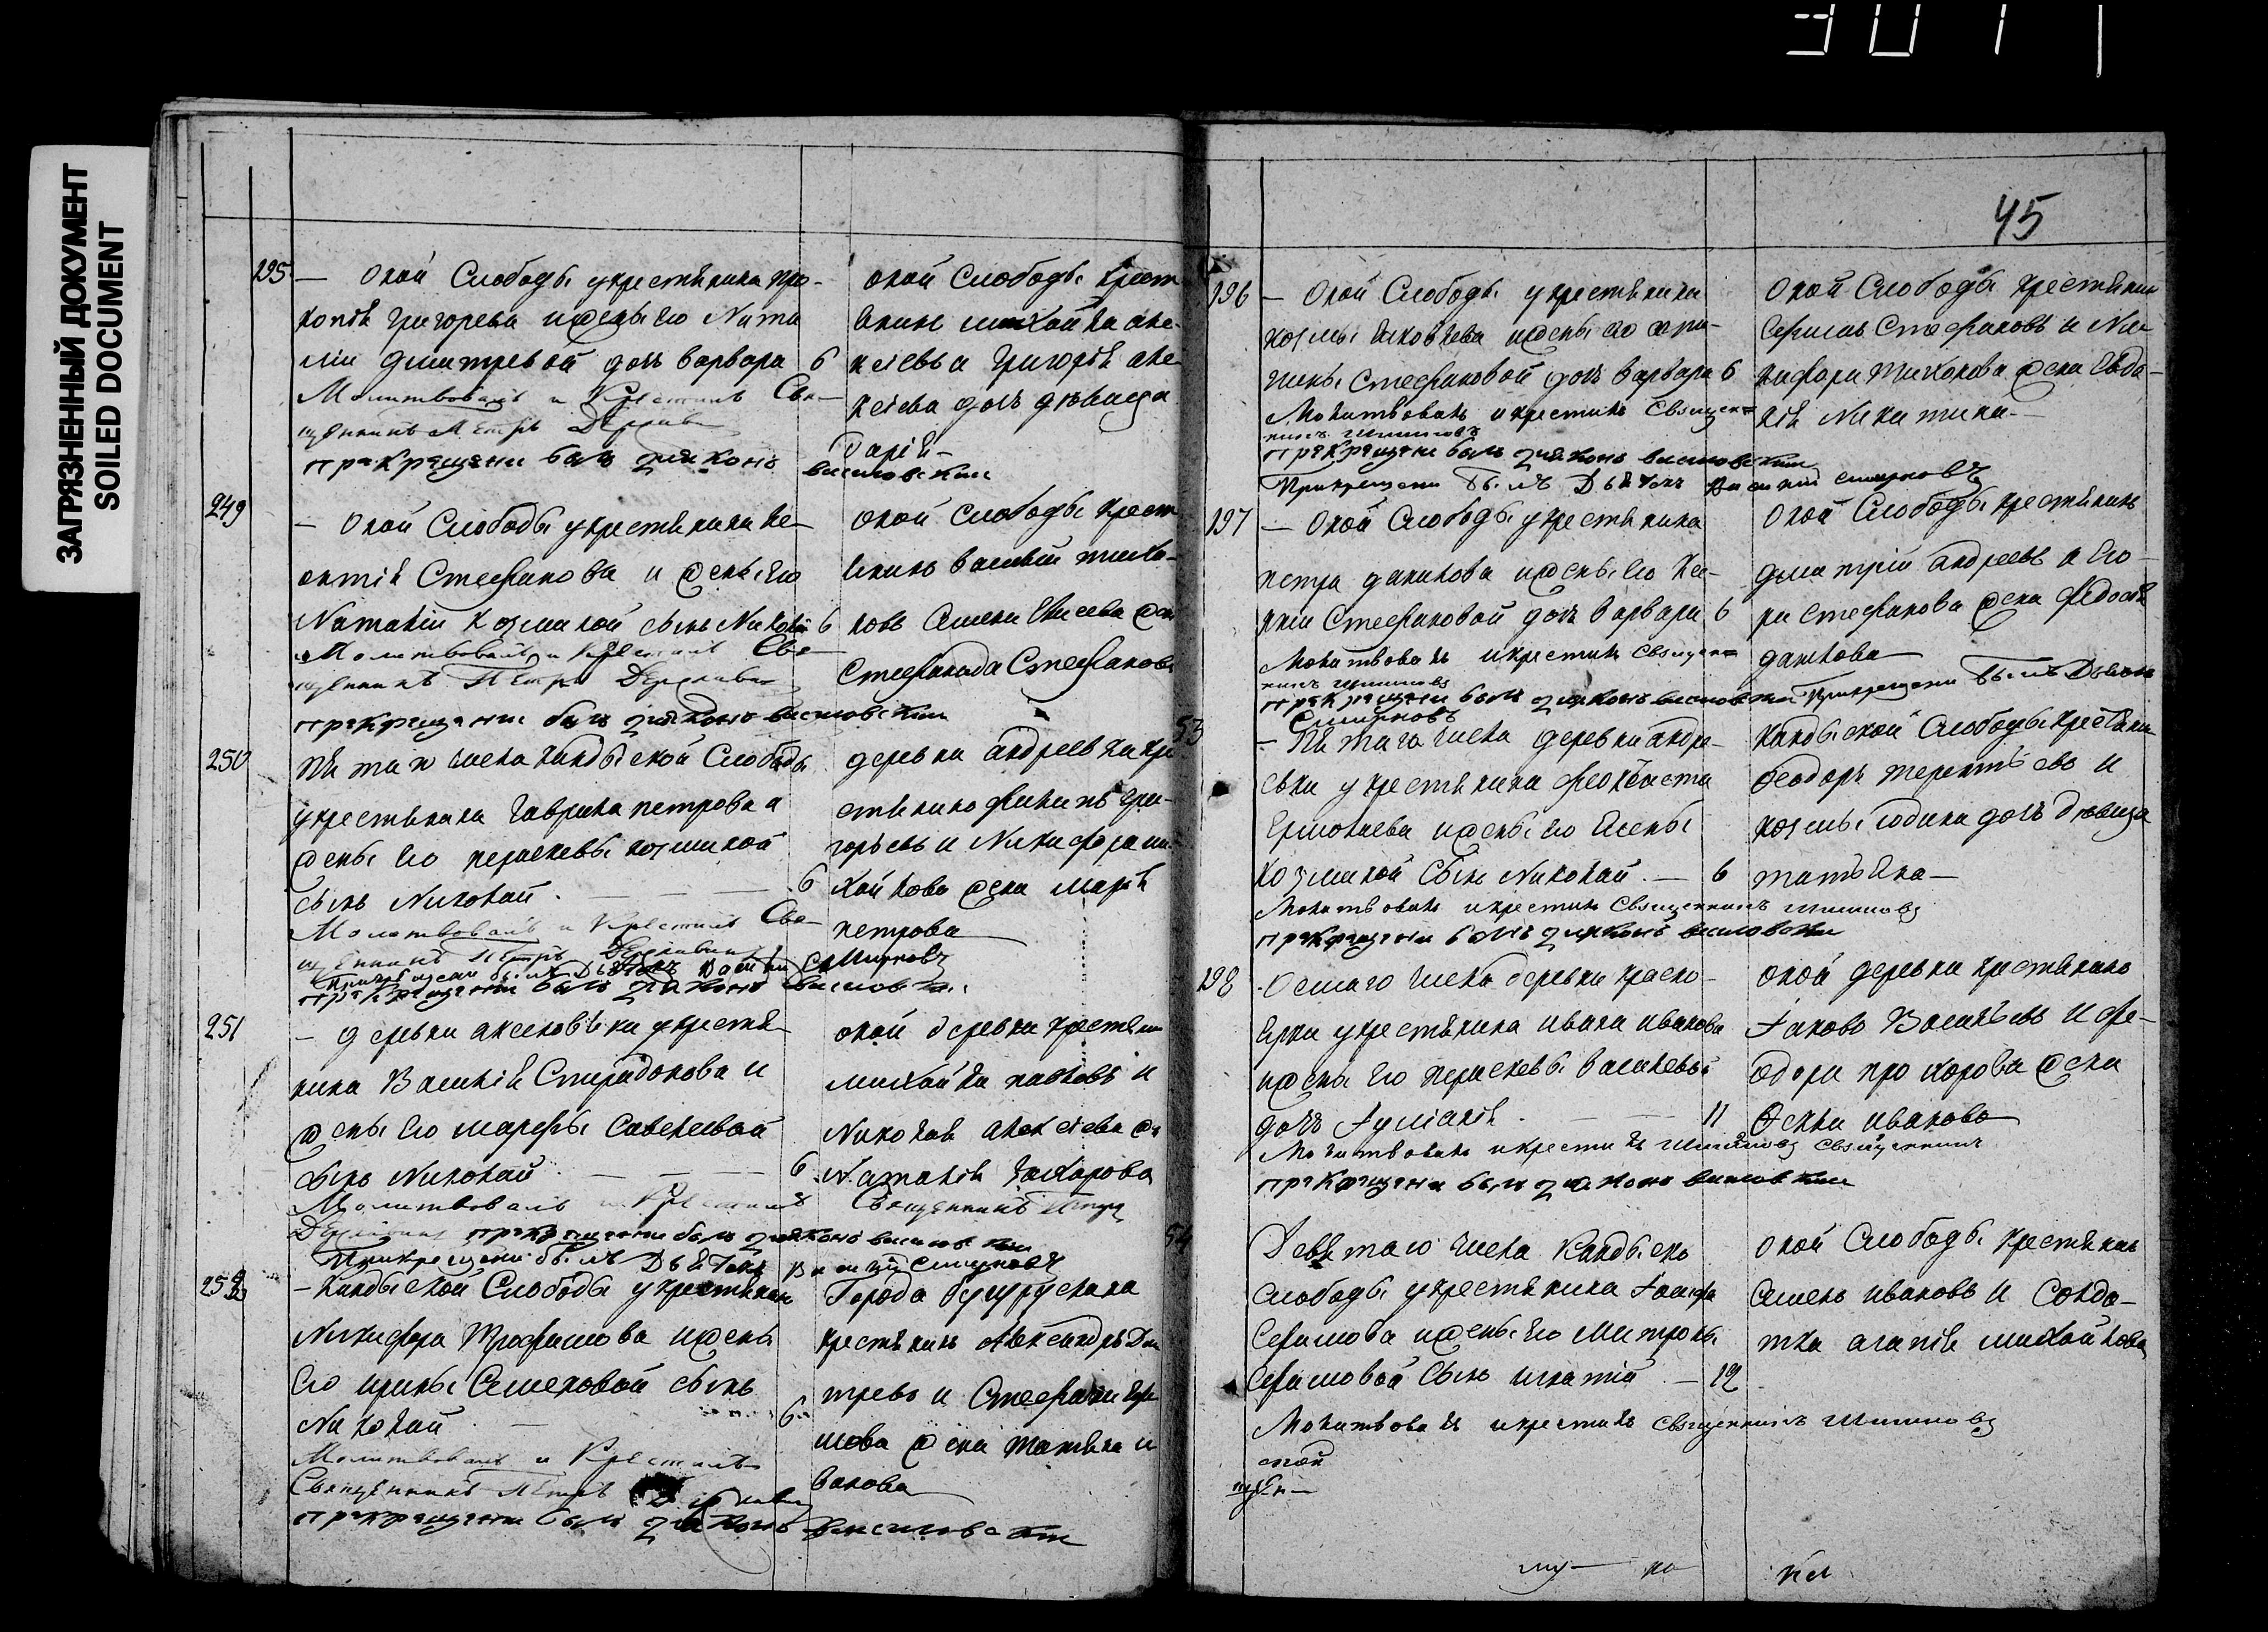 3011
ЗАГРЯЗНЕННЫЙ ДОКУМЕНТ
SOILED DOCUMENT
195 — Оной Слободы у крестьянина Про-
копія Григорьева и жены его Ната
ліи Дмитревой дочь Варвара 6
Молитвовалъ и Крестилъ Свя-
щенникъ Петръ
при крещении былъ диаконъ
оной Слободы крест
янинъ Михайла Але-
ксѣевъ и Григорія Але
ксѣева дочь дѣвица
Дарія —
249
— Оной Слободы у крестьянина Ле-
онтія Стефанова и жены его
Наталіи Козминой сынъ Николай 6
Молитвовалъ и Крестилъ Свя-
щенникъ Петръ
при крещении былъ диаконъ
оной Слободы крест
янинъ Василій Тихо-
новъ Семена Елисеева жена
Степанида Стефанова
250
Пятаго числа Кандыской Слободы
у крестьянина Гаврила Петрова и
жены его Параскевы Козминой
сынъ Николай — 6
Молитвовалъ и Крестилъ Свя-
щенникъ Петръ
При крещени былъ Дьячокъ Василий Смирновъ
при крещении былъ диаконъ
деревни Андреевки кре
стьянинъ Филипъ Гри-
горьевъ и Никифора Ми
хайлова жена Марія
Петрова
251
— деревни Аксеновки у крестья-
нина Василія Спиридонова и
жены его Марфы Савельевой
сынъ Николай — 6
Молитвовалъ и Крестилъ Священникъ Петръ
при крещении былъ диаконъ
При крещени былъ Дьячокъ Василий Смирновъ
оной деревни крестьянин
Михайла Павловъ и
Николая Алексѣева жена
Наталія Захарова
252
— Кандыской Слободы у крестьянина
Никифора Трофимова и жены
его Ирины Семеновой сынъ
Николай — 6
Молитвовалъ и Крестилъ
Священникъ Петръ
при крещении былъ диаконъ
Города Бугуруслана
крестьянинъ Александръ Дми
тревъ и Стефана Ефи
мова жена Татьяна И
ванова
45
196 — Оной Слободы у крестьянина
Козмы Яковлева и жены его Ири-
ны Стефановой дочь Варвара 6
Молитвовалъ и крестилъ Священ
никъ
при крещении былъ диаконъ
При крещени былъ Дьячокъ Василий Смирновъ
Оной Слободы крестьянин
Ефимъ Стефановъ и Ни-
кифора Тихонова жена Евдо-
кія Никитина —
197 — Оной Слободы у крестьянина
Петра Данилова и жены его Ксе-
ніи Стефановой дочь Варвара 6
Молитвовалъ и крестилъ Священ
никъ
при крещении былъ диаконъ При крещени былъ Дьячок
Смирновъ
Оной Слободы крестьянинъ
Дмитрій Андреевъ и Его-
ра Стефанова жена Федосья
Данилова
53
— Пятаго числа деревни Андре-
евки у крестьянина Феоктиста
Ермолаева и жены его Елены
Козминой Сынъ Николай — 6
Молитвовалъ и крестилъ Священникъ
при крещении былъ диаконъ
Кандыской Слободы крестьянин
Феодоръ Терентьевъ и
Козмы Родина дочь дѣвица
Татьяна —
198
Осмаго числа деревни Красно-
ярки у крестьянина Ивана Иванова
и жены его Параскевы Васильевой
дочь Іуліанія — 11
Молитвовалъ и крестилъ Священникъ
при крещении былъ диаконъ
оной деревни крестьянинъ
Іаковъ Васильевъ и Фе-
одора Прохорова жена
Фекла Иванова
54
Девятаго числа Кандыской
Слободы у крестьянина Іосифа
Ефимова и жены его Матроны
Ефимовой Сынъ Игнатій — 12
Молитвовалъ и крестилъ Священникъ
Оной Слободы крестьянинъ
Семенъ Ивановъ и Солда-
тка Агапія Михайлова